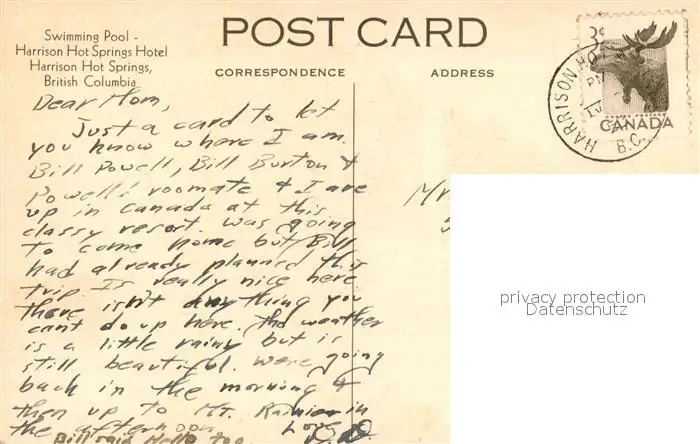 Swimming Pool -
Harrison Hot Springs Hotel
Harrison Hot Springs,
British Columbia
POST CARD
CORRESPONDENCE
ADDRESS
3¢
CANADA
HARRISON HO
PM
B.C.
Dear Mom,
Just a card to let
you know where I am.
Bill Powell, Bill Burton &
Powell's roomate & I are
up in Canada at this
classy resort. Was going
to come home but Bill
had already planned this
trip. Is really nice here
there isn't anything you
cant do up here. The weather
is a little rainy but is
still beautiful. Were going
back in the morning &
then up to Mt. Rainier in
the afternoon. Love
Bill said Hello too
Mr
privacy protection
Datenschutz